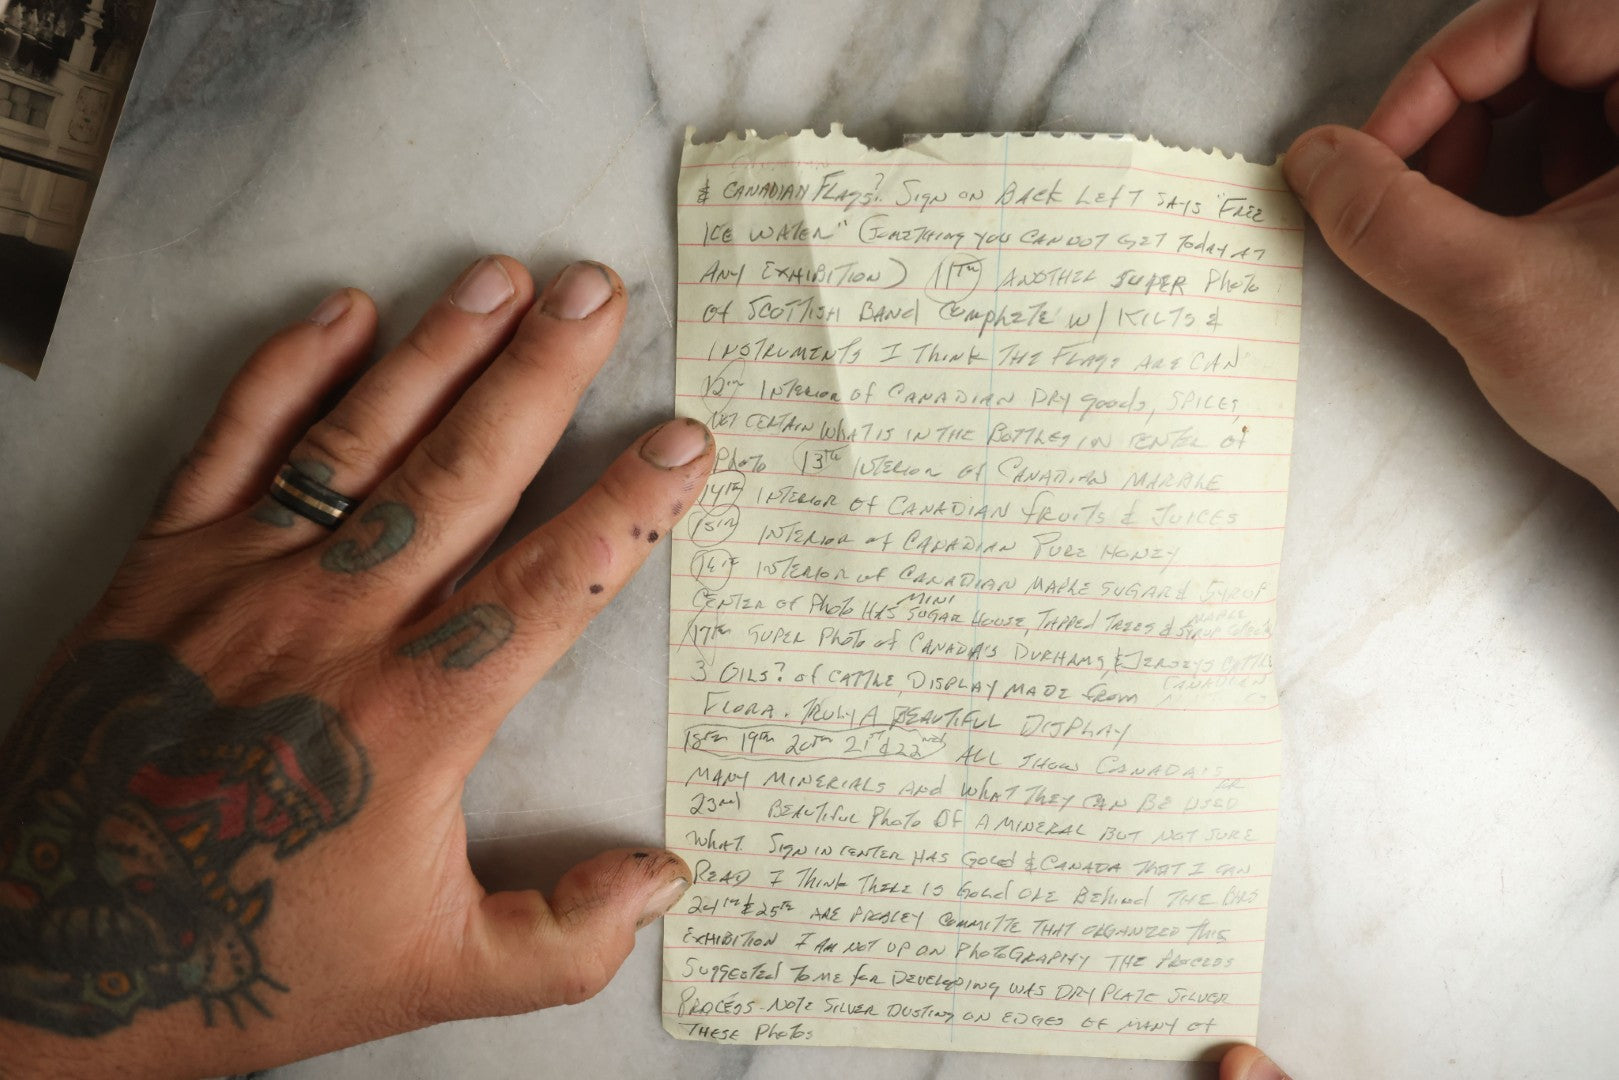 & CANADIAN FLAGS? SIGN ON BACK LEFT SAYS "FREE
ICE WATER" (SOMETHING YOU CANNOT GET TODAY AT
ANY EXHIBITION) 11TH ANOTHER SUPER PHOTO
OF SCOTTISH BAND COMPLETE W/ KILTS &
INSTRUMENTS I THINK THE FLAGS ARE CAN"
12TH INTERIOR OF CANADIAN DRY GOODS, SPICES,
NOT CERTAIN WHAT IS IN THE BOTTLES IN CENTER OF
PHOTO 13TH INTERIOR OF CANADIAN MARBLE
14TH INTERIOR OF CANADIAN FRUITS & JUICES
15TH INTERIOR OF CANADIAN PURE HONEY
16TH INTERIOR OF CANADIAN MAPLE SUGAR & SYROP
CENTER OF PHOTO HAS MINI SUGAR HOUSE, TAPPED TREES & MAPLE SYRUP
17TH SUPER PHOTO OF CANADA'S DURHAMS, & JERSEYS CATTLE
3 OILS? OF CATTLE, DISPLAY MADE FROM CANADIAN
FLORA. TRULY A BEAUTIFUL DISPLAY
18TH 19TH 20TH 21ST & 22ND ALL SHOW CANADA'S
MANY MINERIALS AND WHAT THEY CAN BE USED
23RD BEAUTIFUL PHOTO OF A MINERAL BUT NOT SURE
WHAT. SIGN IN CENTER HAS GOLD & CANADA THAT I CAN
READ I THINK THERE IS GOLD ORE BEHIND THE BARS
24TH & 25TH ARE COMMITTE THAT ORGANIZED THIS
EXHIBITION I AM NOT UP ON PHOTOGRAPHY THE PROCESS
SUGGESTED TO ME FOR DEVELOPING WAS DRY PLATE SILVER
PROCESS - NOTE SILVER DUSTING ON EDGES OF MANY OF
THESE PHOTOS